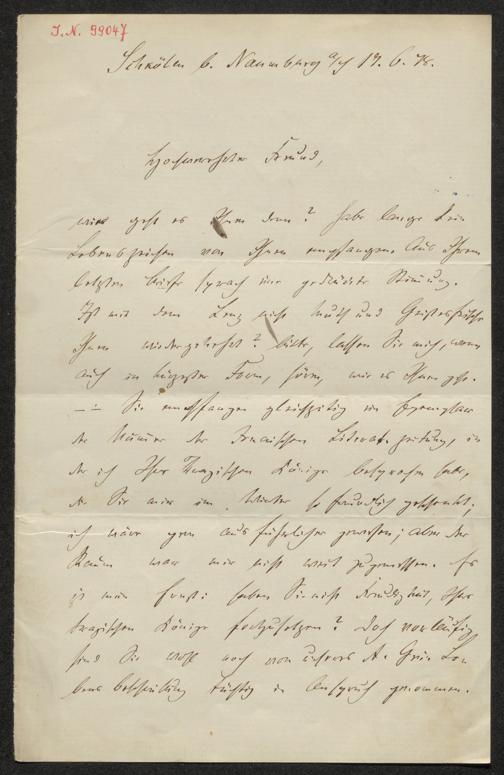 I.N. 99047
Schkölen b. Naumburg a/S 19. 6. 78.
Hochverehrter Freund,
wie geht es Ihnen denn? Habe lange kein
Lebenszeichen von Ihnen empfangen. Aus Ihrem
letzten Briefe sprach eine gedrückte Stimmung.
Ist mit dem Lenz nicht Muth und Geistesfrische
Ihnen wiedergekehrt? Bitte, lassen Sie mich, wenn
auch in kürzester Form, hören, wie es Ihnen geht.
— Sie empfangen gleichzeitig ein Exemplar
der Nummer der Jenaischen Literat. zeitung, in
der ich Ihre tragischen Könige besprochen habe,
die Sie mir im Winter so freundlich geschenkt.
Ich wäre gern ausführlicher gewesen; aber der
Raum war mir nicht weit zugemessen. Es
ist mein Ernst: haben Sie nicht Freudigkeit, Ihre
tragischen Könige fortzusetzen? Doch vorläufig
sind Sie wohl noch von unsres A. Grün Le-
bens beschreibung tüchtig in Anspruch genommen.